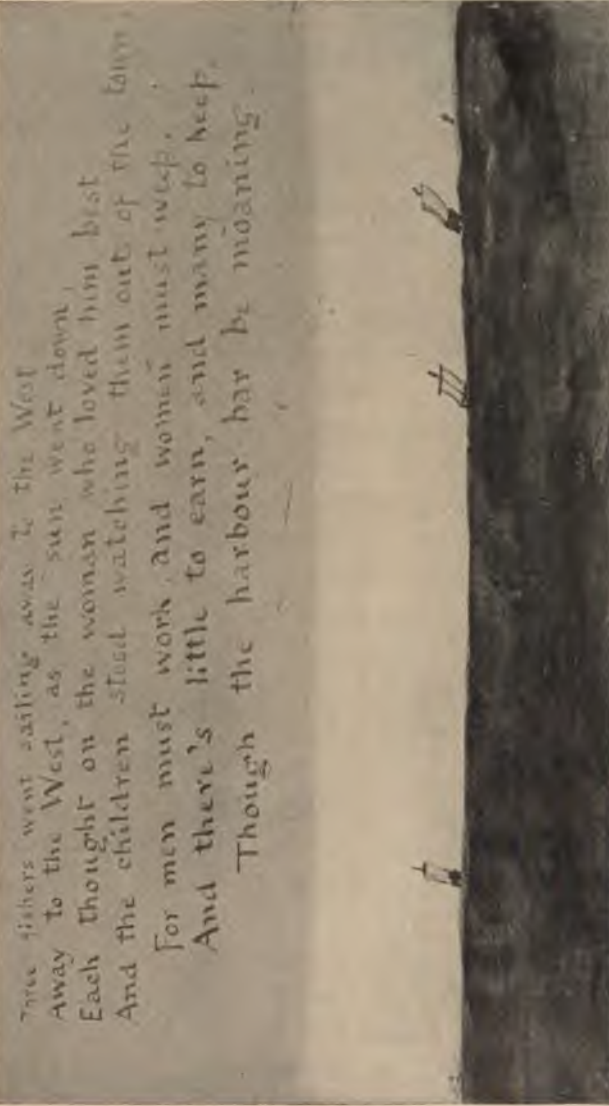 Three fishers went sailing away to the West
Away to the West, as the sun went down,
Each thought on the woman who loved him best
And the children stood watching them out of the town,
For men must work, and women must weep,
And there's little to earn, and many to keep,
Though the harbour bar be moaning.